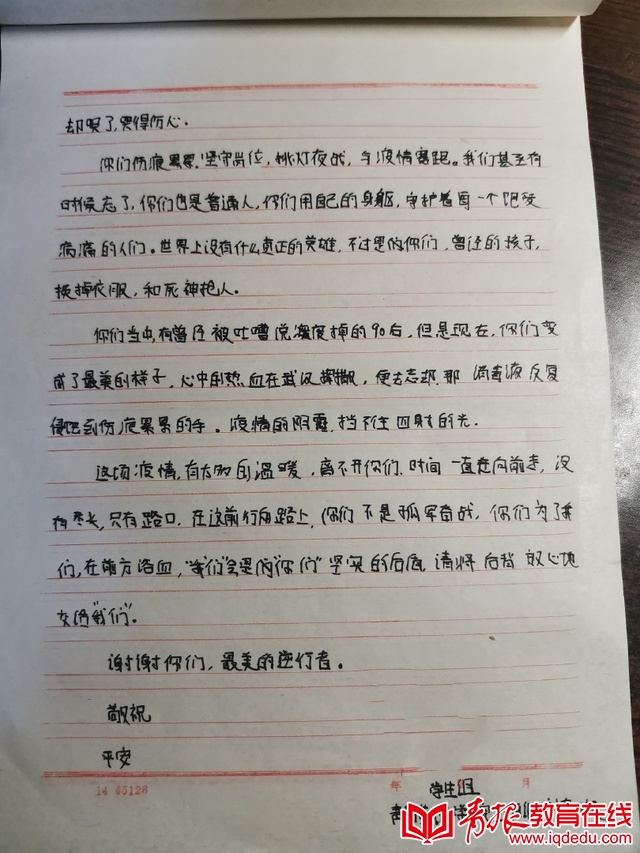 却哭了,哭得伤心。
你们伤痕累累,坚守岗位,挑灯夜战,与疫情赛跑。我们甚至有
时候忘了,你们也是普通人,你们用自己的身躯,守护着每一个饱受
病痛的人们。世界上没有什么真正的英雄,不过是的你们,曾经的孩子,
换掉衣服,和死神抢人。
你们当中有曾经被吐嘈说溺废掉的90后,但是现在,你们变
成了最美的样子,心中的热血在武汉挥撒,便去志那 消毒液反复
侵蚀到伤痕累累的手。疫情的阴霾,挡不住四射的光。
这场疫情,有太多的温暖,离不开你们,时间一直走向前走,没
有尽头,只有路口,在这前行的路上,你们不是孤军奋战,你们为了我
们,在前方浴血,“我们”会是的“你们”坚实的后盾,请将后背放心地
交给“我们”。
谢谢你们,最美的逆行者。
敬祝
平安
14 45126 年 月
学生组
青报教育在线
www.iqdedu.com